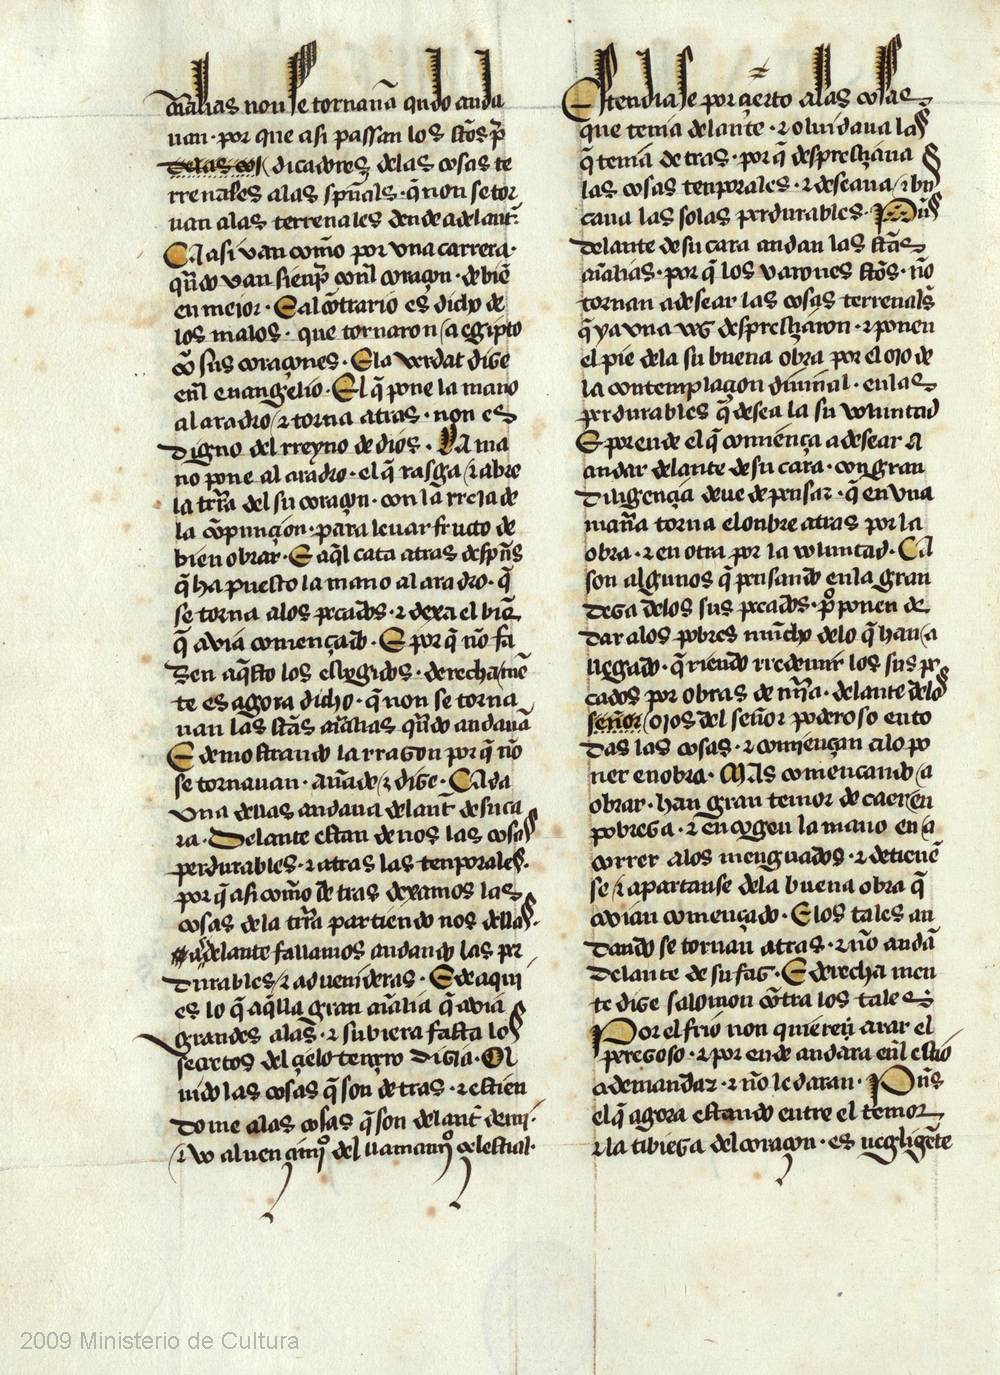 aīalias non se tornauā qn̄do anda
uan · por que asi passan los sc̄tōs p̄
delas cos dicadores delas cosas te
rrenales alas sp̄uāles · q̄ non se tor
nan alas terrenales dende adelant̄ :
Ca asi van com̄o por vna carrera ·
qn̄do van sienp̄ con̄l coraçon · de biē
en meior · E al cōtrario es dicho de
los malos · que tornaron a egipto
cō sus coraçones · E la verdat dize
en̄l euangelio · El q̄ pone la mano
al aradro / ⁊ torna atras · non es
digno del rreyno de dios · La ma
no pone al aradro · el q̄ rasga / ⁊ abre
la tr̄ra del su coraçon · con la rreia de
la cōpunçion · para leuar fructo de
bien obrar · E aq̄l cata atras desp̄ūs
q̄ ha puesto la mano al aradro · q̄
se torna alos pecados · ⁊ dexa el biē
q̄ auia començado · E por q̄ nō fa
zen aq̄sto los esleygidos · derechamē
te es agora dicho · q̄ non se torna
uan las sc̄tās aīalias qn̄do andauā
E demostrando la rrazon por q̄ nō
se tornauan · an̄ade / ⁊ dize · Cada
vna dellas andaua delant̄ de su ca
ra · Delante estan de nos las cosas
perdurables · ⁊ atras las tenporales ·
por q̄ asi com̄o de tras dexamos las
cosas de la tr̄ra partiendo nos dellas ·
asi adelante fallamos andando las pr
durables / ⁊ aduenideras · E de aqui
es lo q̄ aq̄lla gran aīalia q̄ auia
grandes alas · ⁊ subiera fasta los
secretos del çielo terçero dizia · Ol
uido las cosas q̄ son de tras · ⁊ estien
do me alas cosas q̄ son delant̄ de mi ·
⁊ vo al uençimiº del llamamiº çelestial ·
Estendia se por çierto alas cosas
que tenia delante · ⁊ oluidaua las
q̄ tenia de tras · por q̄ despresçiaua
las cosas tenporales · ⁊ deseaua / ⁊ bus
caua las solas perdurables · Pūs
delante de su cara andan las sc̄tās
aīalias · por q̄ los varones sc̄tōs · nō
tornan a desear las cosas terrenals̄
q̄ ya vna vez despresçiaron · ⁊ ponen
el pie dela su buena obra por el oio de
la contemplaçon diuinal · en las
perdurables q̄ desea la su voluntad
E por ende el q̄ comiença a desear a
andar delante de su cara · con gran
diligençia deue de pensar · q̄ en vna
man̄a torna el onbre atras por la
obra · ⁊ en otra por la voluntad · Ca
son algunos q̄ pensando en la gran
deza delos sus pecados · p̄ponen de
dar alos pobres mūcho delo q̄ han a
llegado · q̄riendo rredemir los sus pe
cados por obras de mīa · delante delos
señor ojos del señor poderoso en to
das las cosas · ⁊ comiençan a lo po
ner en obra · Mas començando a
obrar · han gran temor de caer en
pobreza · ⁊ encogen la mano en a
correr alos menguados · ⁊ detienē
se / ⁊ apartanse dela buena obra q̄
auian començado · E los tales an
dando se tornan atras · ⁊ nō andā
delante de su faz · E derecha men
te dize salomon cōtra los tales :
Por el frio non quieren arar el
peresoso · ⁊ por ende andara en̄l estio
a demandar · ⁊ nō le daran · Pūs
el q̄ agora estando entre el temor
⁊ la tibieza del coraçon · es negligēte
2009 Ministerio de Cultura